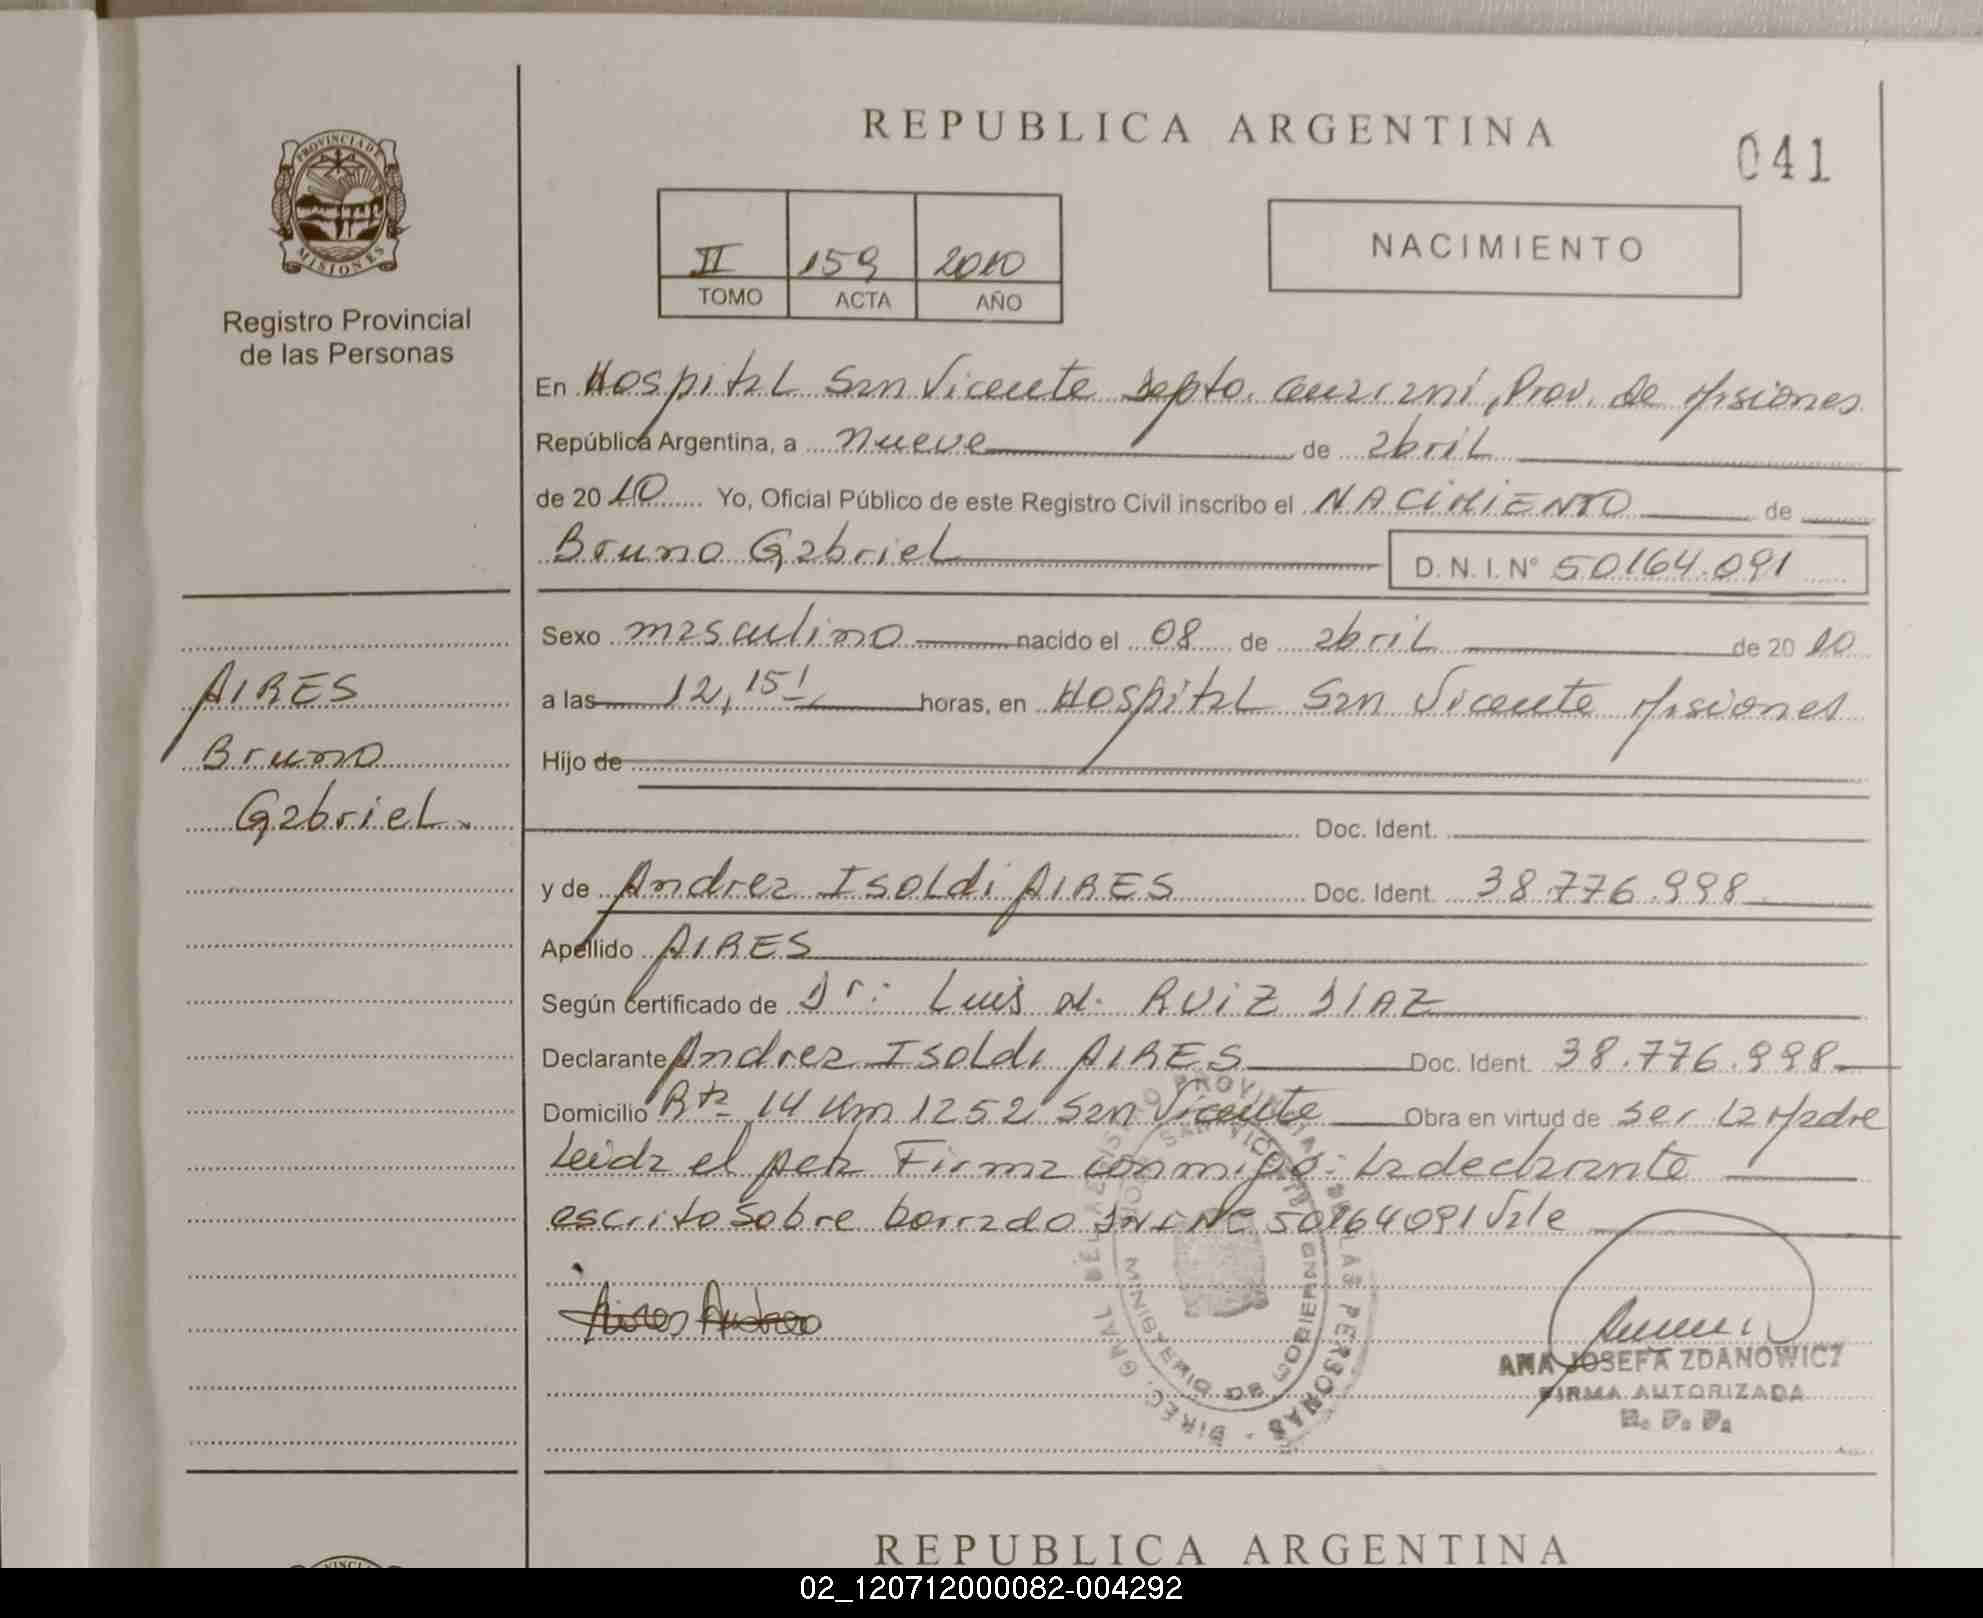 REPUBLICA ARGENTINA
041
PROVINCIA DE
MISIONES
Registro Provincial
de las Personas
II 159 2010
TOMO ACTA AÑO
NACIMIENTO
En Hospital San Vicente Depto. Guaraní, Prov. de Misiones
República Argentina, a nueve de abril
de 20 10 Yo, Oficial Público de este Registro Civil inscribo el NACIMIENTO de
Bruno Gabriel D. N. I. N° 50164.091
Sexo masculino nacido el 08 de abril de 20 10
a las 12,15 horas, en Hospital San Vicente Misiones
Hijo de
Doc. Ident.
y de Andrea Isoldi AIRES Doc. Ident. 38.776.998
Apellido AIRES
Según certificado de Dr: Luis A. RUIZ DIAZ
Declarante Andrea Isoldi AIRES Doc. Ident. 38.776.998
Domicilio Rta 14 Km 1252 San Vicente Obra en virtud de ser la Madre
Leida el Acta Firma conmigo: La declarante
escrito sobre borrado DNI Nº 50164091 Vale
AIRES
Bruno
Gabriel
Aires Andrea
DIREC. GRAL DEL REGISTRO PROVINCIAL DE LAS PERSONAS
MINISTERIO DE GOBIERNO
SAN VICENTE
ANA JOSEFA ZDANOWICZ
FIRMA AUTORIZADA
R. P. P.
REPUBLICA ARGENTINA
02_120712000082-004292